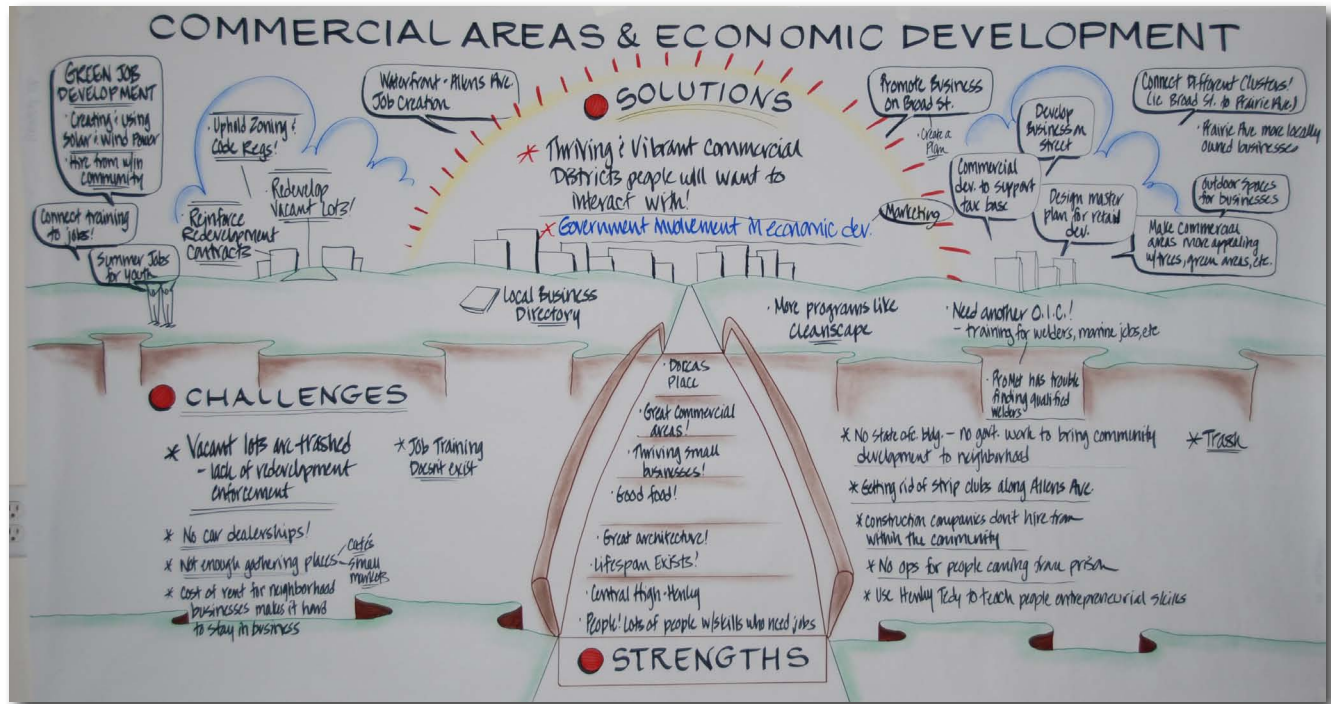 COMMERCIAL AREAS & ECONOMIC DEVELOPMENT
GREEN JOB
DEVELOPMENT
· Creating & using
Solar & Wind Power
· Hire from w/in
community
Connect training
to jobs!
Summer Jobs
for Youth
· Uphold Zoning &
Code Regs!
· Reinforce
Redevelopment
Contracts
· Redevelop
Vacant Lots!
Waterfront - Allens Ave.
Job Creation
SOLUTIONS
* Thriving & Vibrant Commercial
Districts people will want to
interact with!
* Government Involvement in economic dev.
Promote Business
on Broad St.
· Create a
Plan
Marketing
Commercial
dev. to support
tax base
Develop
Business on
Street
Design master
plan for retail
dev.
Connect Different Clusters!
(ie Broad St. to Prairie Ave)
· Prairie Ave more locally
owned businesses
Outdoor Spaces
for businesses
Make commercial
areas more appealing
w/trees, green areas, etc.
Local Business
Directory
· More programs like
Cleanscape
· Need another O.I.C.!
- training for welders, marine jobs, etc
· ProMet has trouble
finding qualified
welders
CHALLENGES
* Vacant lots are trashed
- lack of redevelopment
enforcement
* Job Training
Doesn't exist
* No car dealerships!
* Not enough gathering places
cafés
small
markets
* Cost of rent for neighborhood
businesses makes it hard
to stay in business
· Dorcas
Place
· Great commercial
areas!
· Thriving small
businesses!
· Good food!
· Great architecture!
· Lifespan Exists!
· Central High-Henley
· People! Lots of people w/skills who need jobs
STRENGTHS
* No state ofc. bldg. - no govt. work to bring community
development to neighborhood
* Trash
* Getting rid of strip clubs along Allens Ave.
* Construction companies don't hire from
within the community
* No ops for people coming from prison
* Use Henley Tedy to teach people entrepreneurial skills